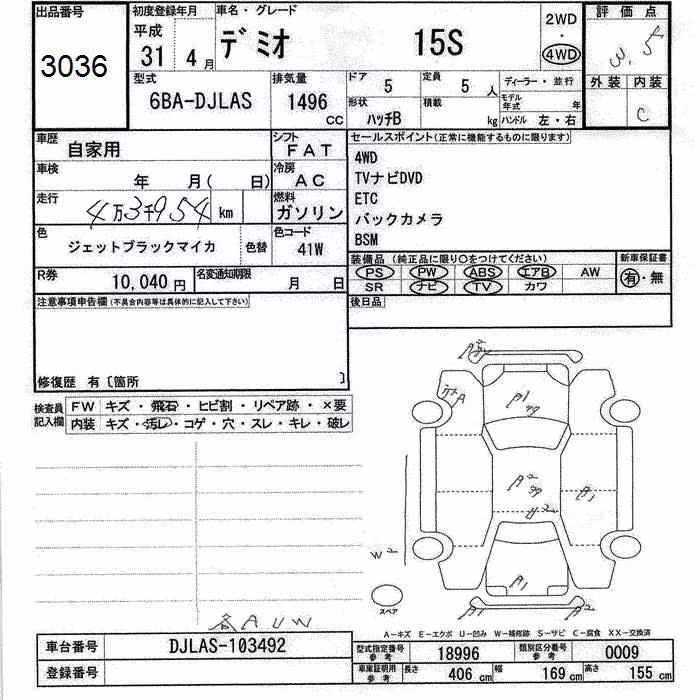 出品番号 初度登録年月 車名・グレード 2WD 評価点
3036 平成 31 4月 デミオ 15S ・ 3.5
4WD
型式 排気量 ドア 5 定員 5人 ディーラー・並行 外装 内装
6BA-DJLAS 1496cc 形状 ハッチB 積載 kg モデル年式 年 C
ハンドル 左・右
車歴 自家用 シフト FAT セールスポイント(正常に機能するものに限ります)
車検 年 月( 日) 冷房 AC 4WD
TVナビDVD
走行 4万3千954km 燃料 ガソリン ETC
バックカメラ
色 ジェットブラックマイカ 色替 色コード 41W BSM
装備品(純正品に限り○をつけてください) 新車保証書
R券 10,040円 名変通知期限 月 日 PS PW ABS エアB AW 有・無
SR ナビ TV カワ
注意事項申告欄(不具合内容等は具体的に記入して下さい) 後日品
修復歴 有〔箇所 〕
検査員 FW キズ・飛石・ヒビ割・リペア跡・×要
記入欄 内装 キズ・汚レ・コゲ・穴・スレ・キレ・破レ
A
A1
A2
U2
A1
W2
A1
A1
スペア
各AUW
A-キズ E-エクボ U-凹み W-補修跡 S-サビ C-腐食 XX-交換済
車台番号 DJLAS-103492 型式指定番号 参考 18996 類別区分番号 参考 0009
登録番号 車庫証明用 参考 長さ 406cm 幅 169cm 高さ 155cm